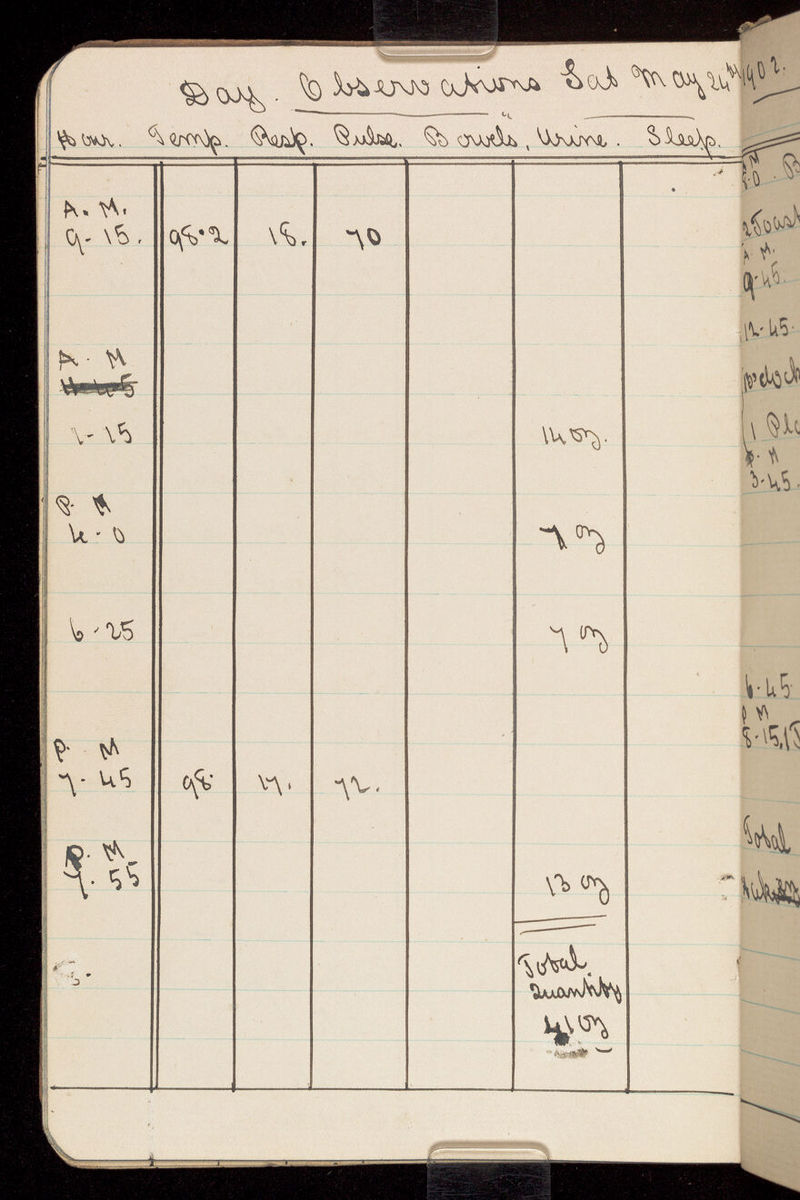 Day. Observations Sat May 24th 1902.
Hour. Temp. Resp. Pulse. Bowels, Urine. Sleep.
A. M.
9-15. 98.2 18. 70
A. M
1-15 14 oz.
P. M
4-0 7 oz
6-25 7 oz
P. M
7-45 98. 17. 72.
P. M
7.55 13 oz
Total
Quantity
41 oz
8-0. B
2 Toast
A. M.
9-45.
12-45.
1 Pla
P. M
3-45.
6-45
P M
8-15.
Total